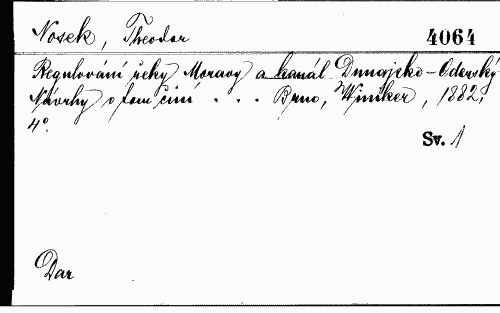 Nosek, Theodor
4064
Regulování řeky Moravy a kanál Dunajsko-Oderský
Návrhy o tom činí . . . Brno, Winiker, 1882,
4°.
Sv. 1
Dar